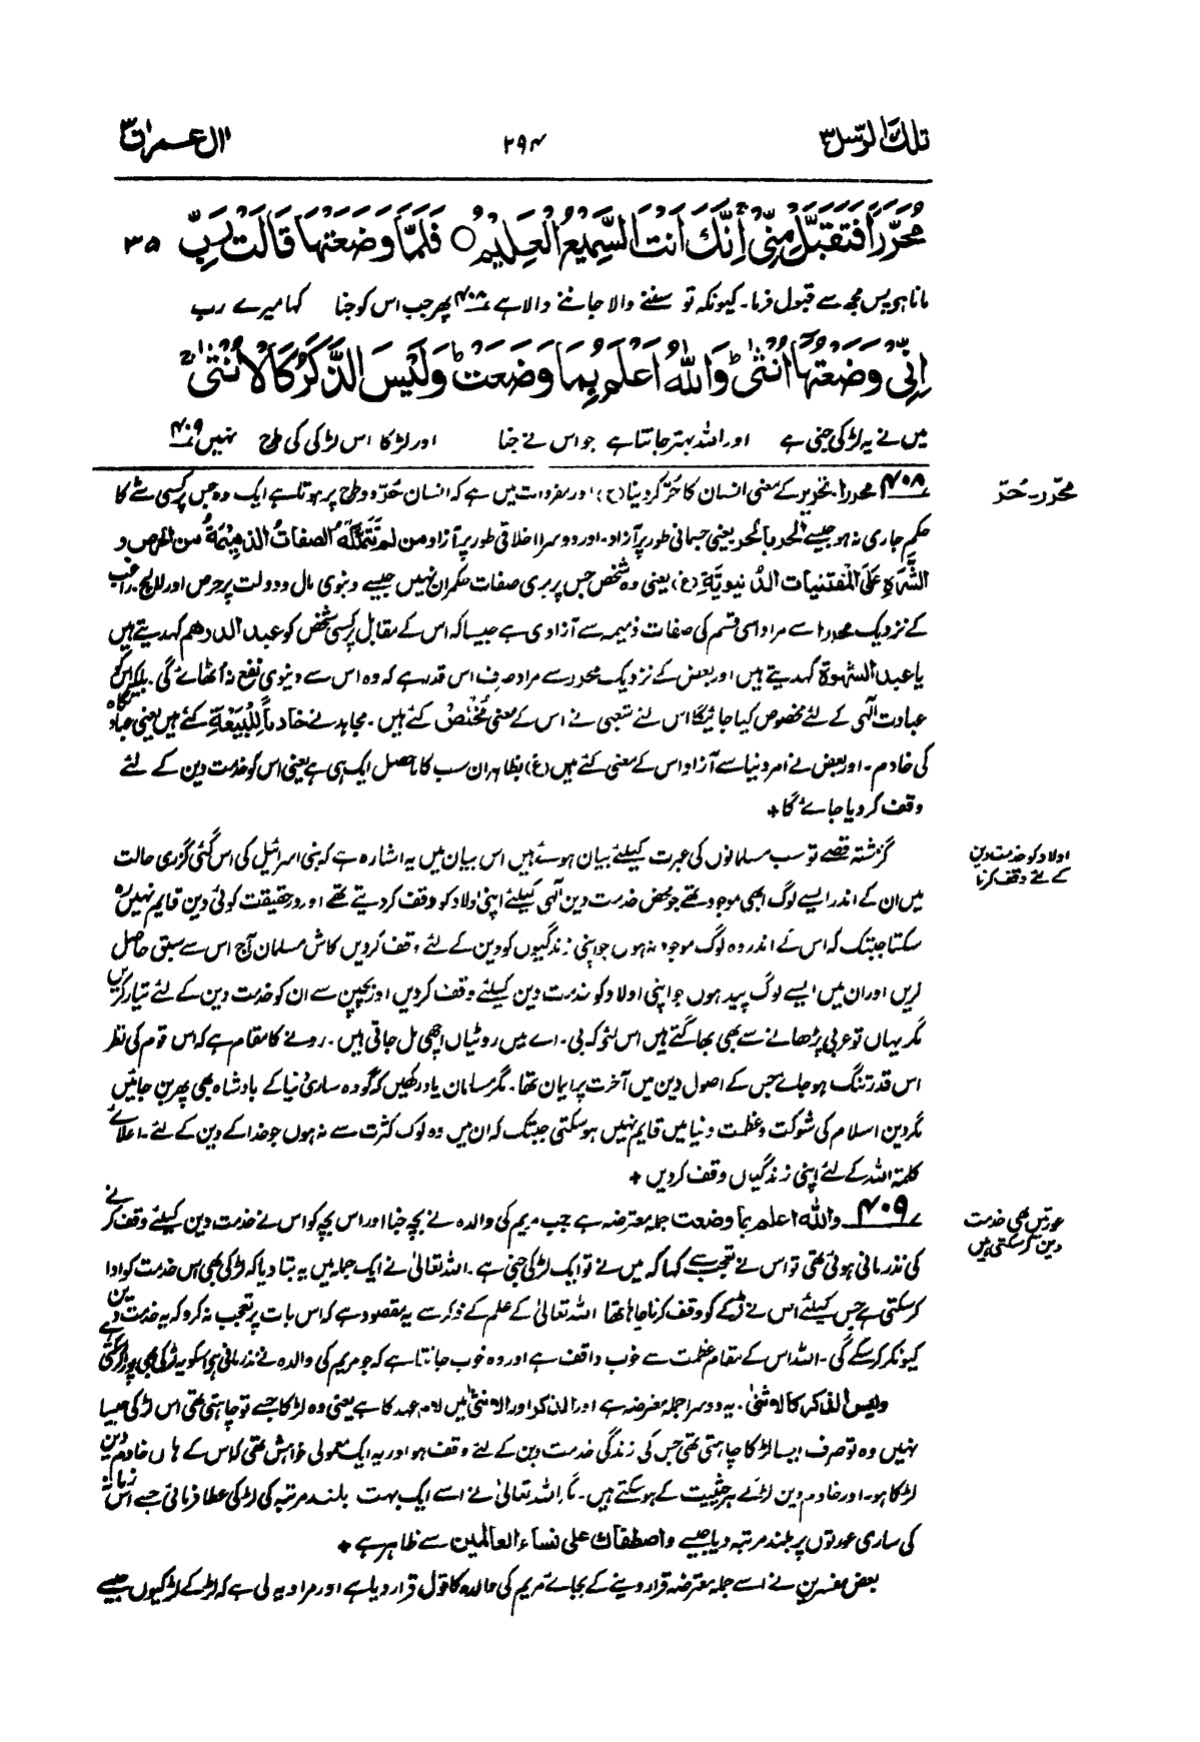 تلك الرسل ۳
۲۹۴
اٰل عمران ۳
مُحَرَّرًا فَتَقَبَّلْ مِنِّیْ ۚ اِنَّكَ اَنْتَ السَّمِیْعُ الْعَلِیْمُ ○ فَلَمَّا وَضَعَتْهَا قَالَتْ رَبِّ ۳۵
مانا ہو پس مجھ سے قبول فرما۔ کیونکہ تو سننے والا جاننے والا ہے ۴۰۸ پھر جب اس کو جنا کہا میرے رب
اِنِّیْ وَضَعْتُهَاۤ اُنْثٰی ؕ وَاللّٰهُ اَعْلَمُ بِمَا وَضَعَتْ ؕ وَلَیْسَ الذَّكَرُ كَالْاُنْثٰی ۚ
میں نے یہ لڑکی جنی ہے اور اللہ بہتر جانتا ہے جو اس نے جنا اور لڑکا اس لڑکی کی طرح نہیں ۴۰۹
محرّر۔ حُرّ
۴۰۸ محررا۔ تحریر کے معنی انسان کا حُرّ کر دینا (ج) اور مفردات میں ہے کہ انسان حُرّ دو طرح پر ہوتا ہے ایک وہ جس پر کسی شے کا
حکم جاری نہ ہو جیسے الحر بالحر یعنی جسمانی طور پر آزاد۔ اور دوسرا اخلاقی طور پر آزاد من لم تتملكه الصفات الذمیمة من الحرص و
الشَّرَهِ عَلَی المقتنیات الدنیویَّةِ (غ) یعنی وہ شخص جس پر بری صفات حکمران نہیں جیسے دنیوی مال و دولت پر حرص اور لالچ۔ راغب
کے نزدیک محررا سے مراد اسی قسم کی صفات ذمیمہ سے آزادی ہے جیسا کہ اس کے مقابل پر کسی شخص کو عبد الدرهم کہدیتے ہیں
یا عبد الشهوة کہدیتے ہیں اور بعض کے نزدیک محرر سے مراد صرف اس قدر ہے کہ وہ اس سے دنیوی نفع نہ اٹھائے گی۔ بلکہ اس کو
عبادت الٰہی کے لئے مخصوص کیا جائیگا اس لئے شعبی نے اس کے معنی مُخْلَصٌ کئے ہیں۔ مجاہد نے خادماً للبیعة کئے ہیں یعنی عبادتگاہ
کی خادم۔ اور بعض نے امر دنیا سے آزاد اس کے معنی کئے ہیں (غ) بظاہر ان سب کا ماحصل ایک ہی ہے یعنی اس کو خدمت دین کے لئے
وقف کر دیا جائے گا٭
اولاد کو خدمت دین
کے لئے وقف کرنا
گزشتہ قصے تو سب مسلمانوں کی عبرت کیلئے بیان ہوئے ہیں اس بیان میں یہ اشارہ ہے کہ بنی اسرائیل کی اس گئی گزری حالت
میں ان کے اندر ایسے لوگ ابھی موجود تھے جو محض خدمت دین الٰہی کیلئے اپنی اولاد کو وقف کر دیتے تھے اور درحقیقت کوئی دین قایم نہیں رہ
سکتا جبتک کہ اس کے اندر وہ لوگ موجود نہ ہوں جو اپنی زندگیوں کو دین کے لئے وقف کر دیں کاش مسلمان آج اس سے سبق حاصل
کریں اور ان میں ایسے لوگ پیدا ہوں جو اپنی اولاد کو خدمت دین کیلئے وقف کر دیں اور بچپن سے ان کو خدمت دین کے لئے تیار کریں
مگر یہاں تو عربی پڑھانے سے بھی بھاگتے ہیں اس لئے کہ بی۔ اے میں روٹیاں اچھی مل جاتی ہیں۔ رونے کا مقام ہے کہ اس قوم کی نظر
اس قدر تنگ ہو جائے جس کے اصول دین میں آخرت پر ایمان تھا۔ مگر مسلمان یاد رکھیں کہ گو وہ ساری دنیا کے بادشاہ بھی پھر بن جائیں
مگر دین اسلام کی شوکت و عظمت دنیا میں قایم نہیں ہو سکتی جبتک کہ ان میں وہ لوگ کثرت سے نہ ہوں جو خدا کے دین کے لئے۔ اعلائے
کلمة اللہ کے لئے اپنی زندگیاں وقف کر دیں ٭
عورتیں بھی خدمت
دین کر سکتی ہیں
۴۰۹ واللّٰه اعلم بما وضعت جملہ معترضہ ہے جب مریم کی والدہ نے بچہ جنا اور اس بچہ کو اس نے خدمت دین کیلئے وقف کرنے
کی نذر مانی ہوئی تھی تو اس نے تعجب سے کہا کہ میں نے تو ایک لڑکی جنی ہے۔ اللہ تعالیٰ نے ایک جملہ میں یہ بتا دیا کہ لڑکی بھی اس خدمت کو ادا
کر سکتی ہے جس کیلئے اس نے لڑکے کو وقف کرنا چاہا تھا اللہ تعالیٰ کے علم کے ذکر سے یہ مقصود ہے کہ اس بات پر تعجب نہ کرو کہ یہ خدمت دین
کیونکر کر سکے گی۔ اللہ اس کے مقام عظمت سے خوب واقف ہے اور وہ خوب جانتا ہے کہ جو مریم کی والدہ نے نذر مانی ہے اسکو یہ لڑکی بھی پورا کر سکتی ہے
ولیس الذکر کالانثیٰ۔ یہ دوسرا جملہ معترضہ ہے اور الذکر اور الانثیٰ میں لام عہد کا ہے یعنی وہ لڑکا جسے تو چاہتی تھی اس لڑکی جیسا
نہیں وہ تو صرف ایسا لڑکا چاہتی تھی جس کی زندگی خدمت دین کے لئے وقف ہو اور یہ ایک معمولی خواہش تھی کہ اس کے ہاں خادم دین
لڑکا ہو۔ اور خادم دین لڑکے ہر حیثیت کے ہو سکتے ہیں۔ مگر اللہ تعالیٰ نے اسے ایک بہت بلند مرتبہ کی لڑکی عطا فرمائی جسے اس زمانہ
کی ساری عورتوں پر بلند مرتبہ دیا جیسے واصطفاك علی نساء العالمین سے ظاہر ہے ٭
بعض مفسرین نے اسے جملہ معترضہ قرار دینے کے بجائے مریم کی والدہ کا قول قرار دیا ہے اور مراد یہ لی ہے کہ لڑکے لڑکیوں جیسے